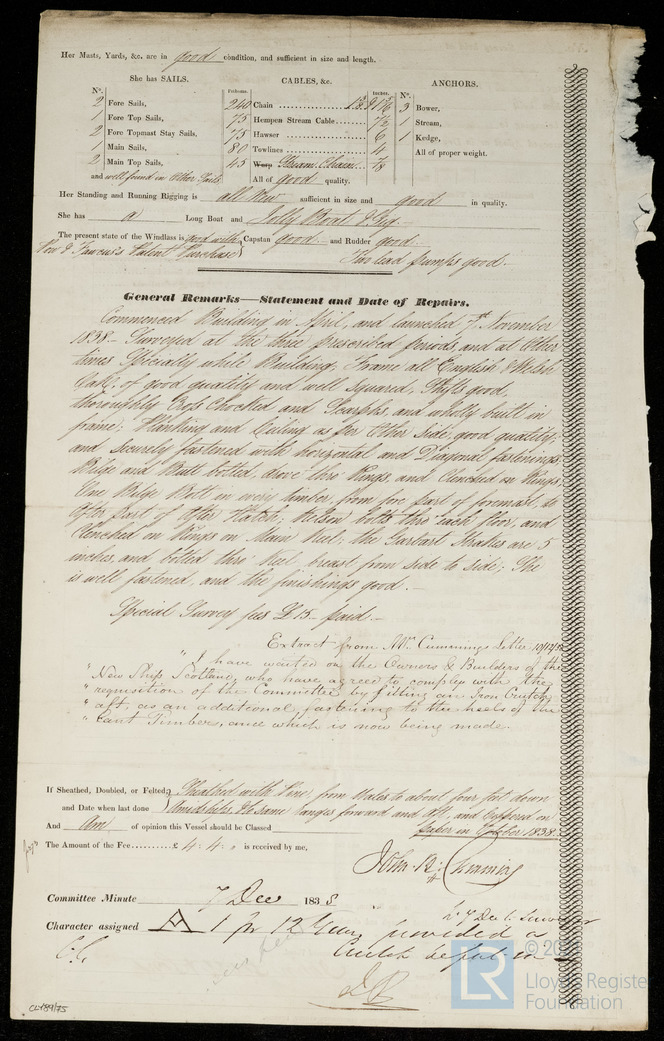 Her Masts, Yards, &c. are in good condition, and sufficient in size and length.
She has SAILS. CABLES, &c. ANCHORS.
No. Fathoms. Inches. No.
2 Fore Sails, 240 Chain 3 Bower,
1 Fore Top Sails, 75 Hempen Stream Cable 7½ 1 Stream,
2 Fore Topmast Stay Sails, 75 Hawser 6 1 Kedge,
1 Main Sails, 80 Towlines 4 All of proper weight.
2 Main Top Sails, 45 Warp Stream Chain 7/8
and well found in Other Sails All of good quality.
Her Standing and Running Rigging is all New sufficient in size and good in quality.
She has a Long Boat and Jolly Boat & Gig.
The present state of the Windlass is good with Capstan good and Rudder good
Patent Purchase Two lead pumps good.
General Remarks—Statement and Date of Repairs.
Commenced Building in April, and launched 7th November
1838. Surveyed at the three prescribed periods, and at Other
times Specially while Building, Frame all English & Welsh
Oak, of good quality and well Squared, Shifts good,
thoroughly Cross Chocked and Scarphs, and wholly built in
frame; Planking and Ceiling as per Other Side, good quality,
and securely fastened with horizontal and Diagonal fastenings,
Bilge and Butt bolted, drove thro' Rings, and Clenched on Rings,
One Bilge Bolt in every timber, from fore part of foremast, to
After part of After Hatch; Kelson bolts thro' each floor, and
Clenched on Rings on Main Keel; the Garbart Strakes are 5
inches, and bolted thro' Keel, breast from side to side; She
is well fastened, and the finishings good.
Special Survey fees £15 paid
Extract from Mr. Cummings Letter 10/12/38
" I have waited on the Owners & Builders of the
" New Ship Scotland, who have agreed to comply with the
" requisition of the Committee by fitting an Iron Crutch
" aft, as an additional fastening to the heels of the
" Cant Timbers, and which is now being made.
If Sheathed, Doubled, or Felted Sheathed with Pine, from Wales to about four feet down
and Date when last done Amidships, the same ranges forward and Aft, and Coppered on
And Am of opinion this Vessel should be Classed paper in October 1838
The Amount of the Fee £ 4 : 4 : 0 is received by me,
John Bt. Cumming
Committee Minute 7 Dec 1838
Character assigned A 1 for 12 Years provided a
Crutch be put in
C.C.
CLY89/75
LR
Lloyd's Register
Foundation